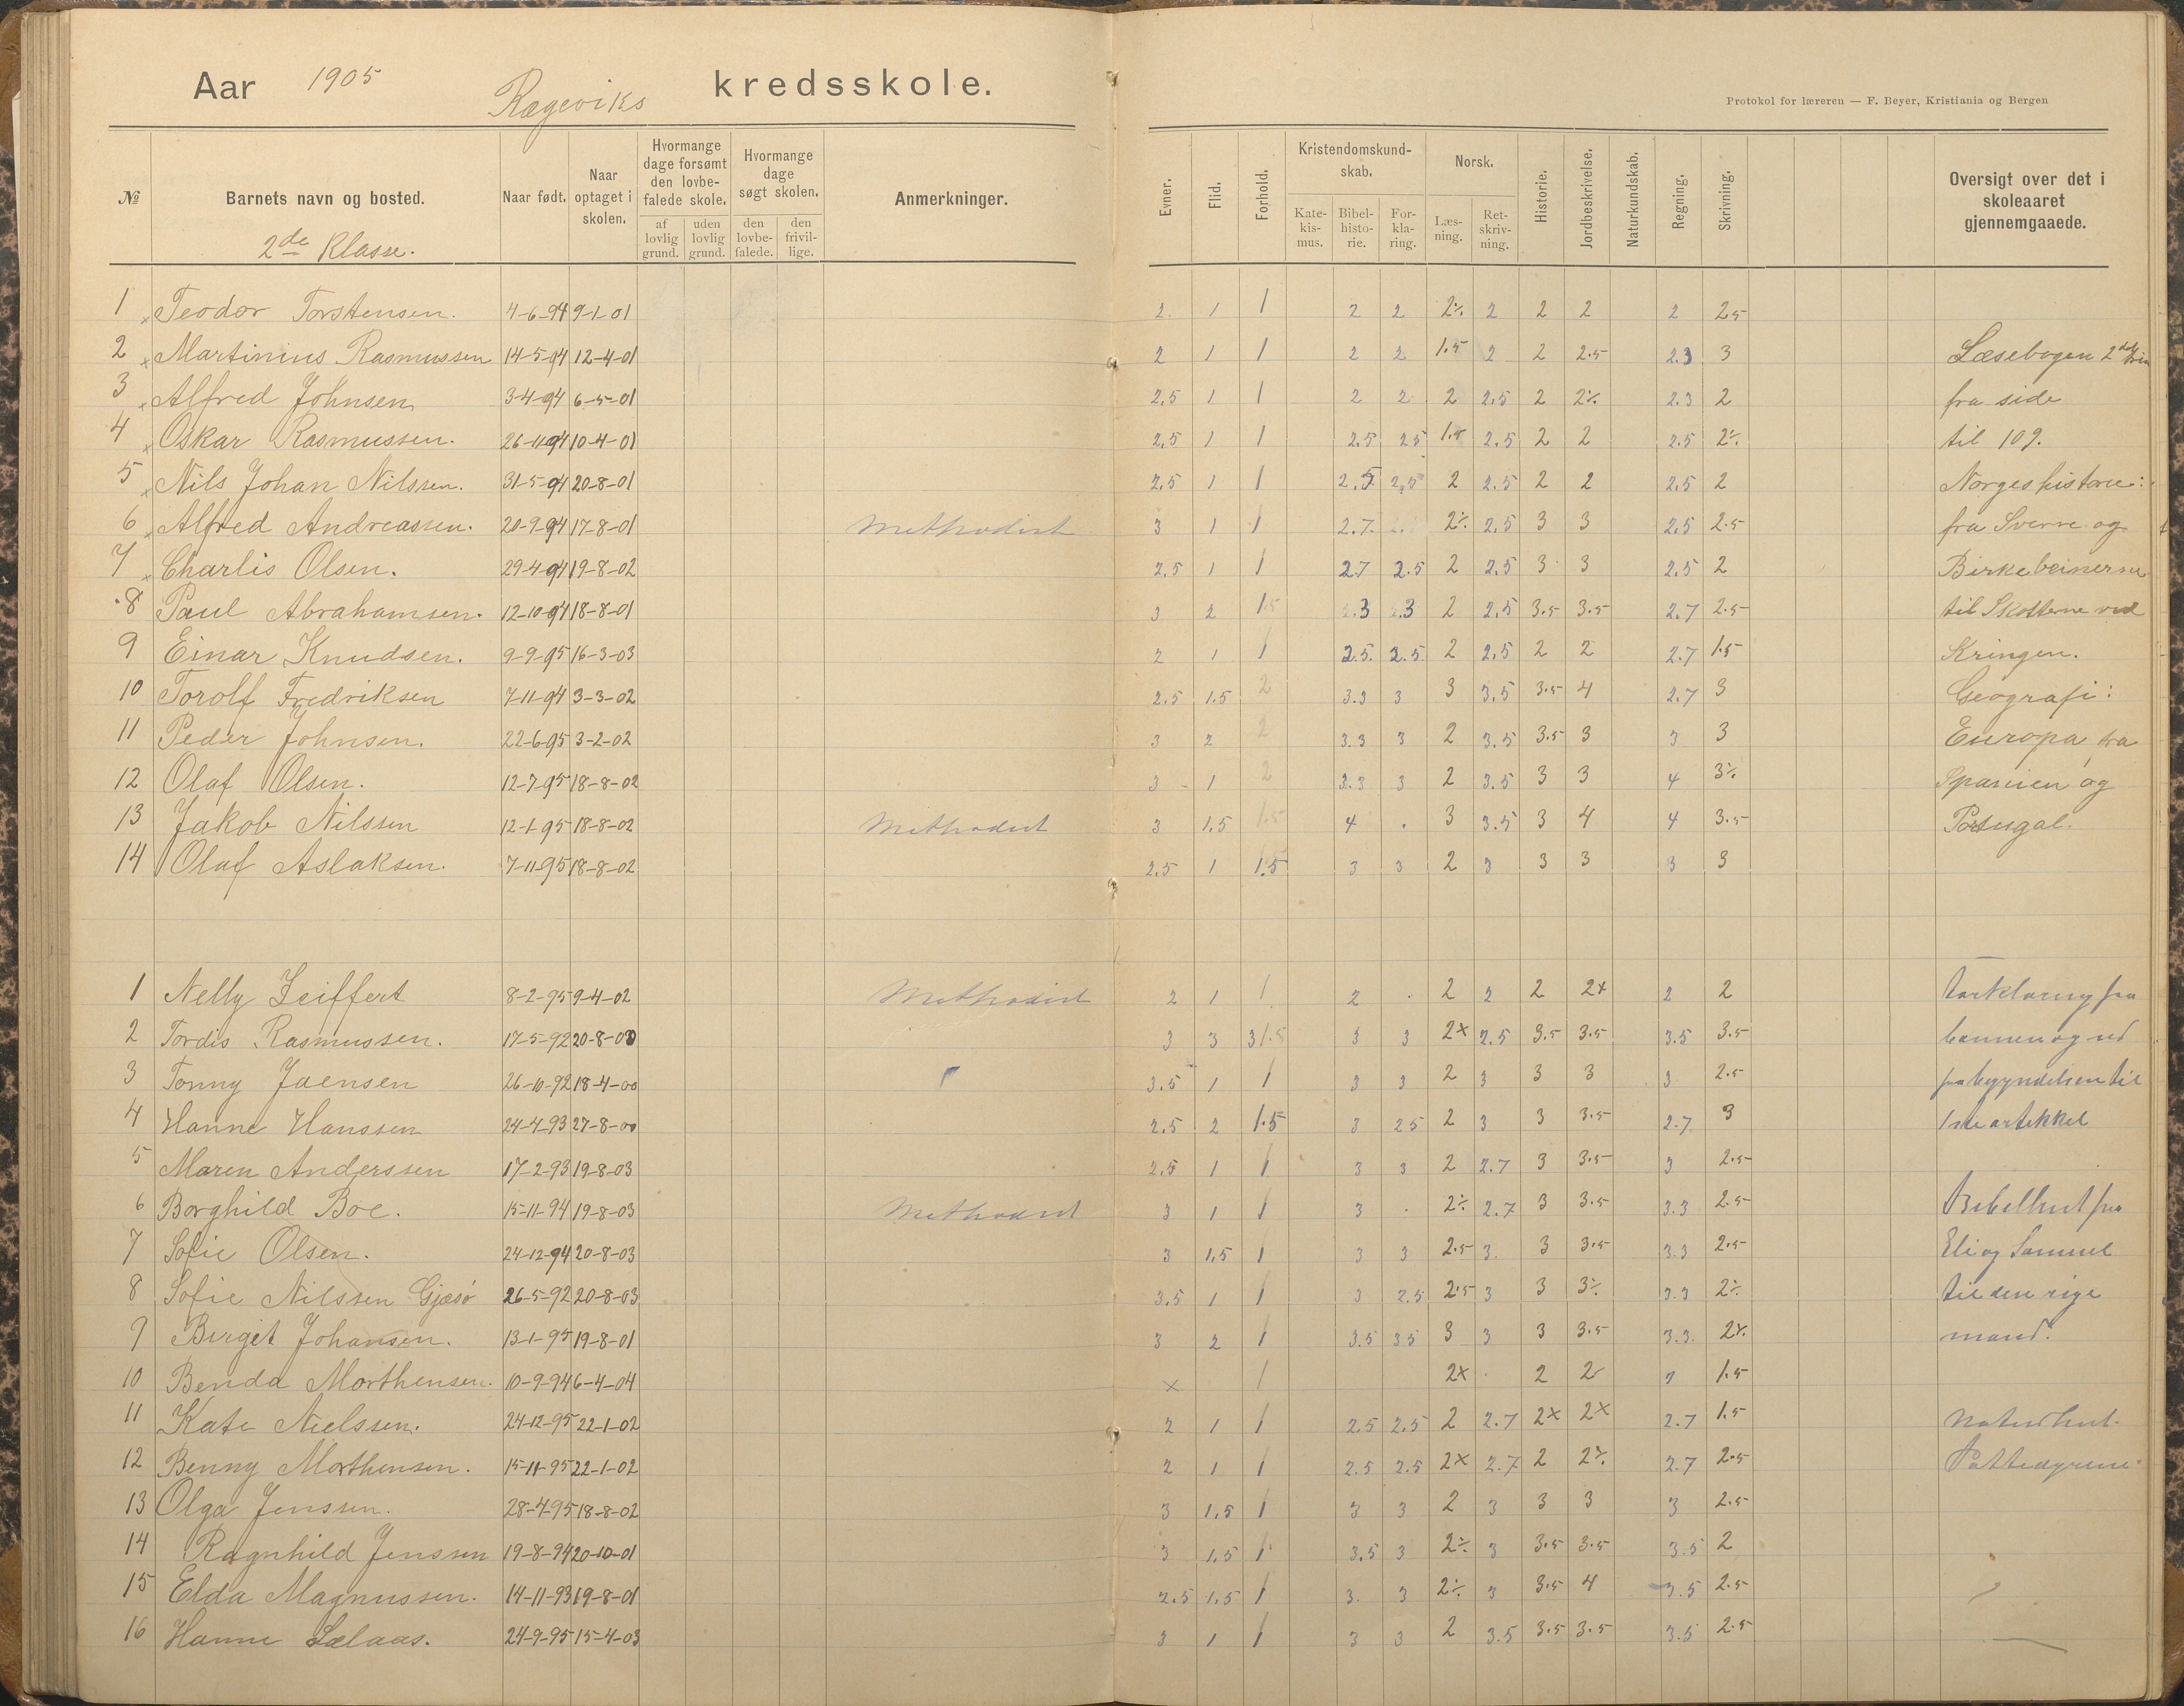 Aar 1905 Rægeviks kredsskole.
Protokol for læreren — F. Beyer, Kristiania og Bergen
№ Barnets navn og bosted. Naar født. Naar optaget i skolen. Hvormange dage forsømt den lovbefalede skole. af lovlig grund. uden lovlig grund. Hvormange dage søgt skolen. den lovbefalede. den frivillige. Anmerkninger. Evner. Flid. Forhold. Kristendomskundskab. Katekismus. Bibelhistorie. Forklaring. Norsk. Læsning. Retskrivning. Historie. Jordbeskrivelse. Naturkundskab. Regning. Skrivning. Oversigt over det i skoleaaret gjennemgaaede.
2de Klasse.
1 Teodor Torstensen. 4-6-94 9-1-01 2 1 1 2 2 2÷ 2 2 2 2 2.5
2 Martinius Rasmussen 14-5-94 12-4-01 2 1 1 2 2 1.5 2 2 2.5 2.3 3 Læsebogen 2det
3 Alfred Johnsen 3-4-94 6-5-01 2,5 1 1 2 2 2 2,5 2 2÷ 2.3 2 fra side
4 Oskar Rasmussen. 26-11-94 10-4-01 2,5 1 1 2.5 25 1.5 2,5 2 2 2.5 2÷ til 109.
5 Nils Johan Nilssen. 31-5-94 20-8-01 2,5 1 1 2.5 2,5 2 2.5 2 2 2,5 2 Norgeshistorie:
6 Alfred Andreassen. 20-9-94 17-8-01 Methodist 3 1 1 2.7. 2÷ 2,5 3 3 2,5 2.5 fra Sverre og
7 Charlis Olsen. 29-4-94 19-8-02 2,5 1 1 27 2.5 2 2,5 3 3 2,5 2 Birkebeinerne
8 Paul Abrahamsen. 12-10-94 18-8-01 3 2 1.5 2.3 2.3 2 2,5 3.5 3.5 2.7 2.5 til Skotterne ved
9 Einar Knudsen. 9-9-95 16-3-03 2 1 1 2.5. 2.5 2 2,5 2 2 2.7 1.5 Kringen.
10 Torolf Fredriksen 7-11-94 3-3-02 2.5 1.5 2 3.3 3 3 3,5 3.5 4 2.7 3 Geografi:
11 Peder Johnsen. 22-6-95 3-2-02 3 2 2 3.3 3 2 3.5 3.5 3 3 3 Europa fra
12 Olaf Olsen. 12-7-95 18-8-02 3 1 2 3.3 3 2 3.5 3 3 4 3÷ Spanien og
13 Jakob Nilssen 12-1-95 18-8-02 Methodist 3 1,5 1.5 4 . 3 3.5 3 4 4 3.5 Portugal.
14 Olaf Aslaksen. 7-11-95 18-8-02 2,5 1 1.5 3 3 2 3 3 3 3 3
1 Nelly Seiffert 8-2-95 9-4-02 Methodist 2 1 1 2 . 2 2 2 2x 2 2 Forklaring fra
2 Tordis Rasmussen. 17-5-92 20-8-00 3 3 3 1.5 3 3 2x 2.5 3.5 3.5 3.5 3.5 bønnen og ud
3 Tonny Jaensen 26-10-92 18-4-00 3.5 1 1 3 3 2 3 3 3 3 2.5 fra begyndelsen til
4 Hanne Hanssen 24-4-93 27-8-00 2.5 2 1.5 3 25 2 3 3 3.5 2.7 3 1ste artikkel
5 Maren Anderssen 17-2-93 19-8-03 2,5 1 1 3 3 2 2.7 3 3.5 3 2.5
6 Borghild Boe. 15-11-94 19-8-03 Methodist 3 1 1 3 . 2÷ 2.7 3 3.5 3.3 2.5 Bibelhist fra
7 Sofie Olsen. 24-12-94 20-8-03 3 1,5 1 3 3 2.5 3. 3 3.5 3.3 2.5 Eli og Samuel
8 Sofie Nilssen Gjæsø 26-5-92 20-8-03 3.5 1 1 3 2.5 2.5 3 3 3÷ 3.3 2÷ til den rige
9 Birget Johansen. 13-1-95 19-8-01 3 2 1 3.5 35 3 3 3 3.5 3.3. 2÷ mand.
10 Benda Morthensen. 10-9-94 6-4-04 x 1 2x . 2 2 2 1.5
11 Kate Nielssen. 24-12-95 22-1-02 2 1 1 2.5 2.5 2 2.7 2x 2x 2.7 1.5 Naturhist.
12 Benny Morthensen. 15-11-95 22-1-02 2 1 1 2.5 2.5 2x 2.7 2 2÷ 2.7 2.5 Pattedyrene
13 Olga Jenssen. 28-4-95 18-8-02 3 1,5 1 3 3 2 3 3 3 3 2.5
14 Ragnhild Jenssen 19-8-94 20-10-01 3 1,5 1 3,5 3 2÷ 3 3.5 3.5 3.5 2
15 Elda Magnussen. 14-11-93 19-8-01 2.5 1,5 1 3. 3 2÷ 3 3.5 4 3.5 2.5
16 Hanne Lælaas. 24-9-95 15-4-03 3 1 1 3 3 2 3.5 3.5 3.5 3.5 2.5